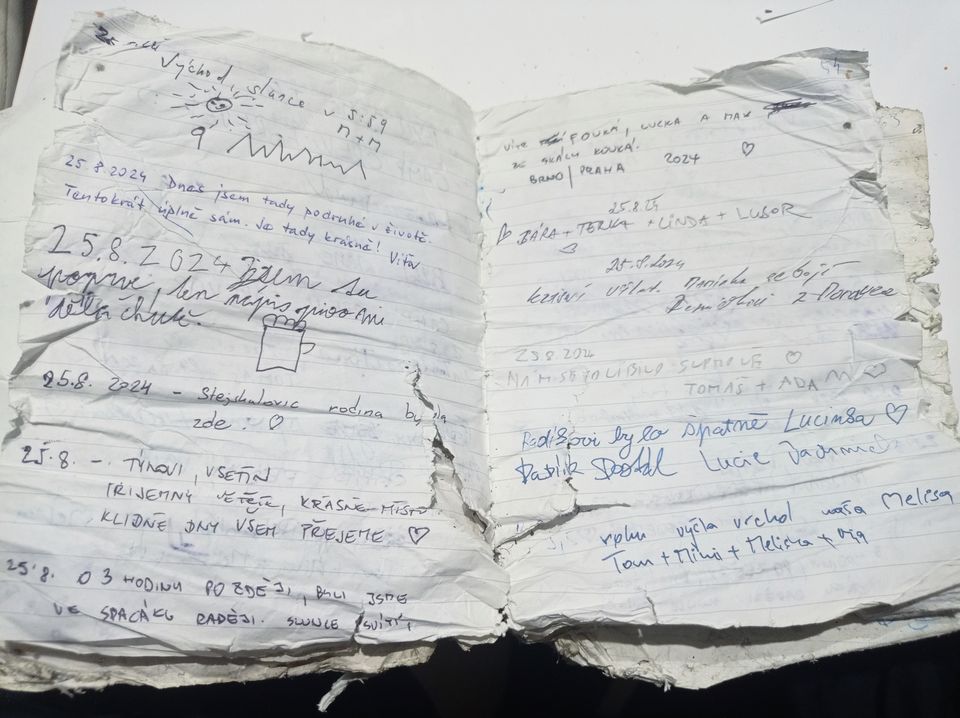 Východ slunce v 5:59
M + M
25.8.2024 Dnes jsem tady podruhé v životě.
Tentokrát úplně sám. Je tady krásně! Víťa
25.8.2024 Jsem tu
poprvé, ten nápis pivo mi
dělá chutě.
25.8. 2024 - Stejskalovic rodina byla
zde. ♡
25.8. - TÝNOVI, VSETÍN
PŘÍJEMNÝ VĚTŘÍK, KRÁSNÉ MÍSTO
KLIDNÉ DNY VŠEM PŘEJEME ♡
25.8. O 3 HODINU POZDĚJI, BYLI JSME
VE SPACÁKU RADĚJI. SLUNCE SVÍTÍ,
54
FOUKÁ, LUCKA A MAX
ZE SKÁLY KOUKÁ.
BRNO/PRAHA 2024 ♡
25.8.24
BÁRA + TERKA + LINDA + LUBOR
25.8.2024
výlet. Maninka se bojí
z
25.8.2024
NÁM SE TO LÍBILO SUPROVĚ ♡
TOMÁŠ + ADA ♡
Radišovi bylo špatně Lucinka ♡
Lucie
vrchol naša Melisa
Tom + Miki + Meliska +